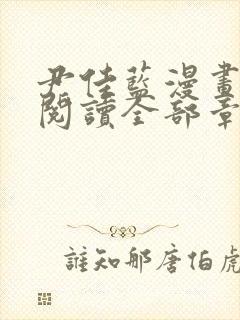 尹佳藍漫畫
閱讀全部章
誰知那唐伯虎